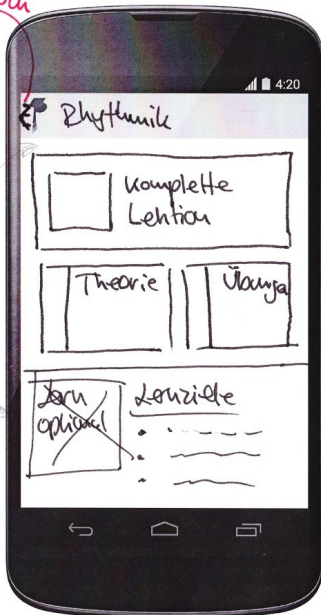 4:20
Rhythmik
komplette
Lektion
Theorie
Übungen
optional
Lernziele